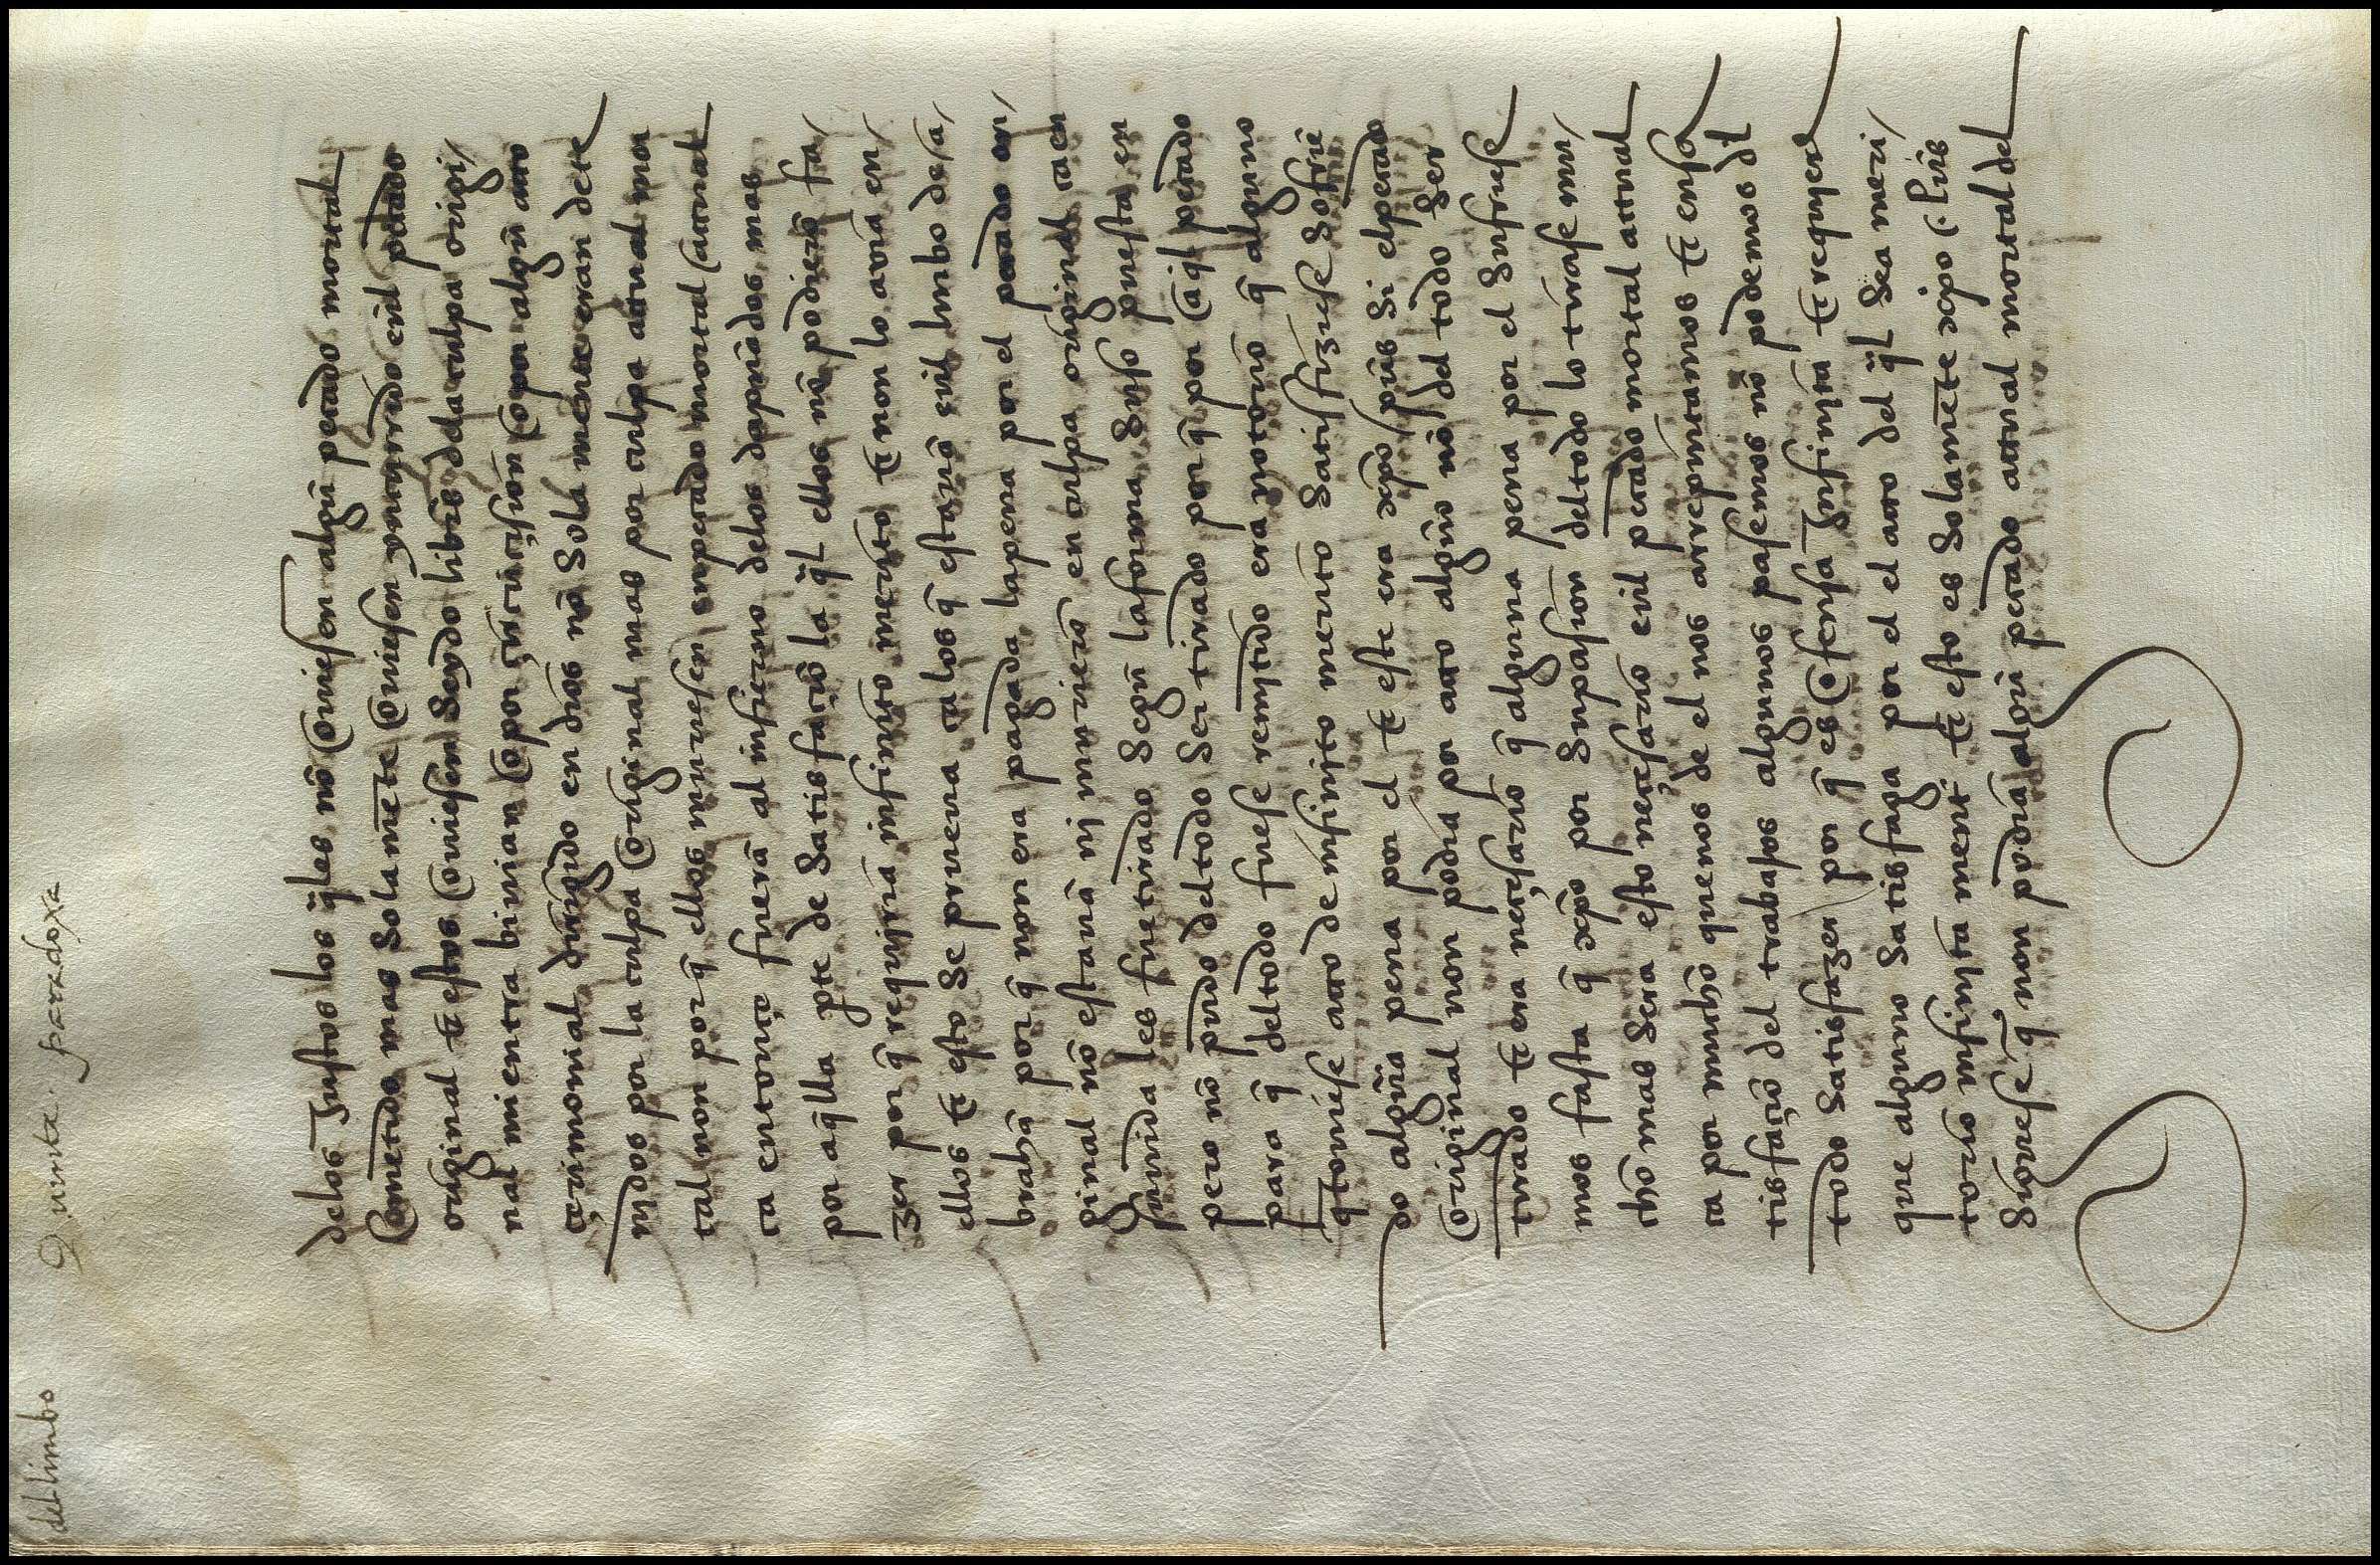 del limbo
Quinta . paradoxa
delos Justos los q̃les nõ Ouiesen algũ pecado mortal
Cometido mas Sola mẽte Ouiesen yncurrido enl pecado
original τ estos Ouiesen Seydo libres dela culpa origi/
nal mientra biuian O por çircũçisiõn O por algũ acto
çerimonial dirigido en dios nõ Sola mente eran dete
nidos por la culpa Original mas por culpa actual mor
tal non por q̃ ellos muriesen en pecado mortal actual
ca entonçe fuerã al infierno delos dapnados mas
por aq̃lla pte de Satisfaçiõ la q̃l ellos nõ podierõ fa/
zer por q̃ requiria infinito merito τ non lo auia en/
ellos τ esto Se prueua ca los q̃ estauã enl limbo de a/
brahã por q̃ non era pagada la pena por el pecado ori/
ginal nõ estauã nj muriero en culpa original ca en
Su vida les fue tirado Segũ la forma Suso puesta en
pero nõ pudo del todo Ser tirado por q̃ por q̃l pecado
para q̃ del todo fuese remjtido era notorio q̃ alguno
q̃ touiese acto de infinjto merito Satisfiziese Sofrie
do algũa pena por el τ este era xp̃o / pues Si el pecado
Original non podia por acto algũo nõ del todo Ser
tirado τ era neçesario q̃ alguna pena por el Sufriese
mos fasta q̃ xp̃o por Su pasion del todo lo tirase mu/
cho mas Sera esto neçesario enl pecado mortal actual
ca por mucho que nos de el nos arrepintamos τ en Sa
tisfaçiõ del trabajos algunos pasemos nõ podemos dl
todo Satisfazer por q̃ es Ofensa Infinita τ requiere
que alguno Satisfaga por el el acto del q̃l Sea meri/
torio infinita mente τ esto es Solamẽte xipo Pues
Siguese q̃ non podia algũ pecado actual mortal del